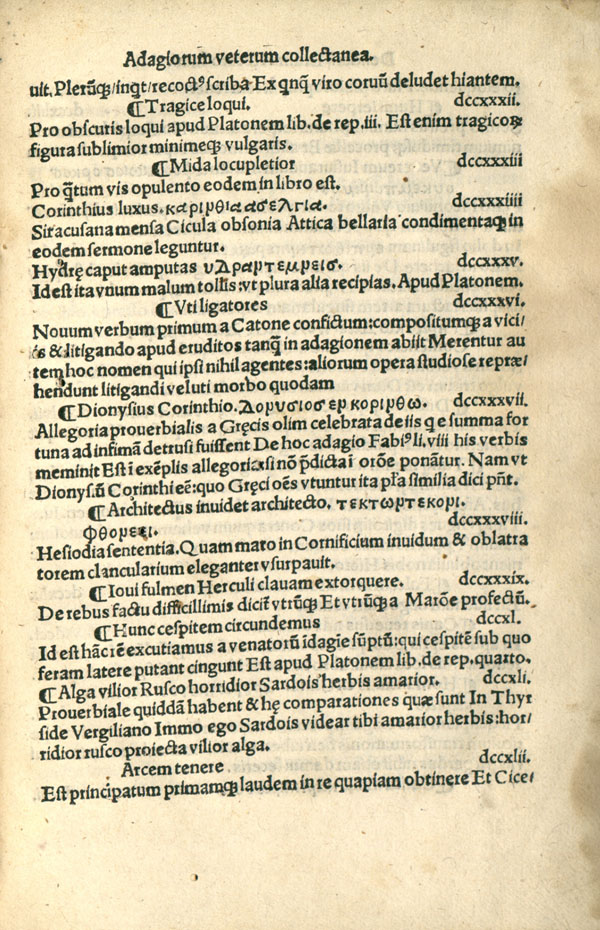 Adagiorum veterum collectanea.
uit. Plerūꝗ/inqt/recoctꝰ scriba Ex qnq̄ viro coruū deludet hiantem.
¶Tragice loqui. dccxxxii.
Pro obscuris loqui apud Platonem lib. de rep. iii. Est enim tragicoꝝ
figura sublimior minimeqꝫ vulgaris.
¶Mida locupletior dccxxxiii
Pro q̄tum vis opulento eodem in libro est.
Corinthius luxus. καριμθιαασελγια. dccxxxiiii
Siracusana mensa Cicula obsonia Attica bellaria condimentaqꝫ in
eodem sermone leguntur.
Hydrę caput amputas υδραμτεμμεισ. dccxxxv.
Id est ita vnum malum tollis: vt plura alia recipias. Apud Platonem.
¶Vti ligatores dccxxxvi.
Nouum verbum primum a Catone confictum: compositumqꝫ a vici/
is & litigando apud eruditos tanq̄ in adagionem abiit Merentur au
tem hoc nomen qui ipsi nihil agentes: aliorum opera studiose repræ/
hendunt litigandi veluti morbo quodam
¶Dionysius Corinthio. Διομυσιοσεμκοριμθω. dccxxxvii.
Allegoria prouerbialis a Gręcis olim celebrata de iis q e summa for
tuna ad infimā detrusi fuissent De hoc adagio Fabiꝰ li. viii his verbis
meminit Est ī exēplis allegoria: si nō p̄dicta ī orōe ponātur. Nam vt
Dionys.ū Corinthi eē: quo Gręci oēs vtuntur ita pl̄a similia dici pn̄t.
¶Architectus inuidet architecto. τεκτωμτεκομι.
φθομεει. dccxxxviii.
Hesiodia sententia. Quam maro in Cornificium inuidum & oblatra
torem clancularium eleganter vsurpauit.
¶Ioui fulmen Herculi clauam extorquere. dccxxxix.
De rebus factu difficillimis dicit̄ vtrūqꝫ Et vtrūqꝫ a Marōe profectū.
¶Hunc cespitem circundemus dccxl.
Id est hāc rē excutiamus a venatorū īdagīe sūptū: qui cespitē sub quo
feram latere putant cingunt Est apud Platonem lib. de rep. quarto.
¶Alga vilior Rusco horridior Sardois herbis amarior. dccxli.
Prouerbiale quiddā habent & hę comparationes quæ sunt In Thyr
side Vergiliano Immo ego Sardois videar tibi amarior herbis: hor/
ridior rusco proiecta vilior alga.
Arcem tenere dccxlii.
Est principatum primamqꝫ laudem in re quapiam obtinere Et Cice/